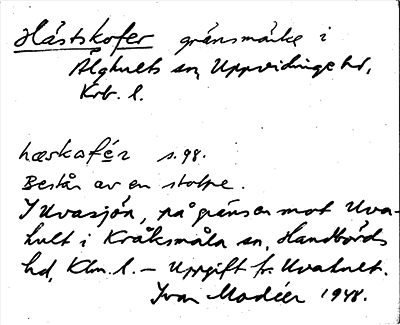 Hästskofer gränsmärke i
Älghults sn, Uppvidinge hd,
Krb. l.
hæskafér s. 98.
Består av en stolpe.
I Uvasjön, på gränsen mot Uva-
hult i Kråksmåla sn, Handbörds
hd, Klm. l. – Uppgift fr. Uvahult.
Ivar Modéer 1948.